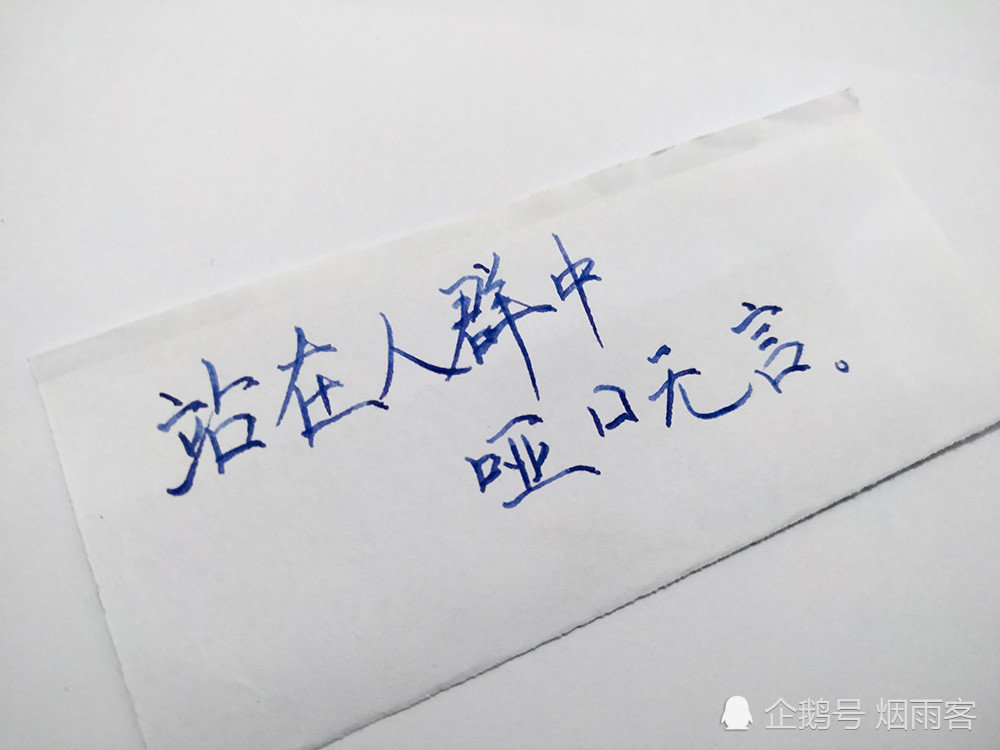 站在人群中
哑口无言。
企鹅号 烟雨客